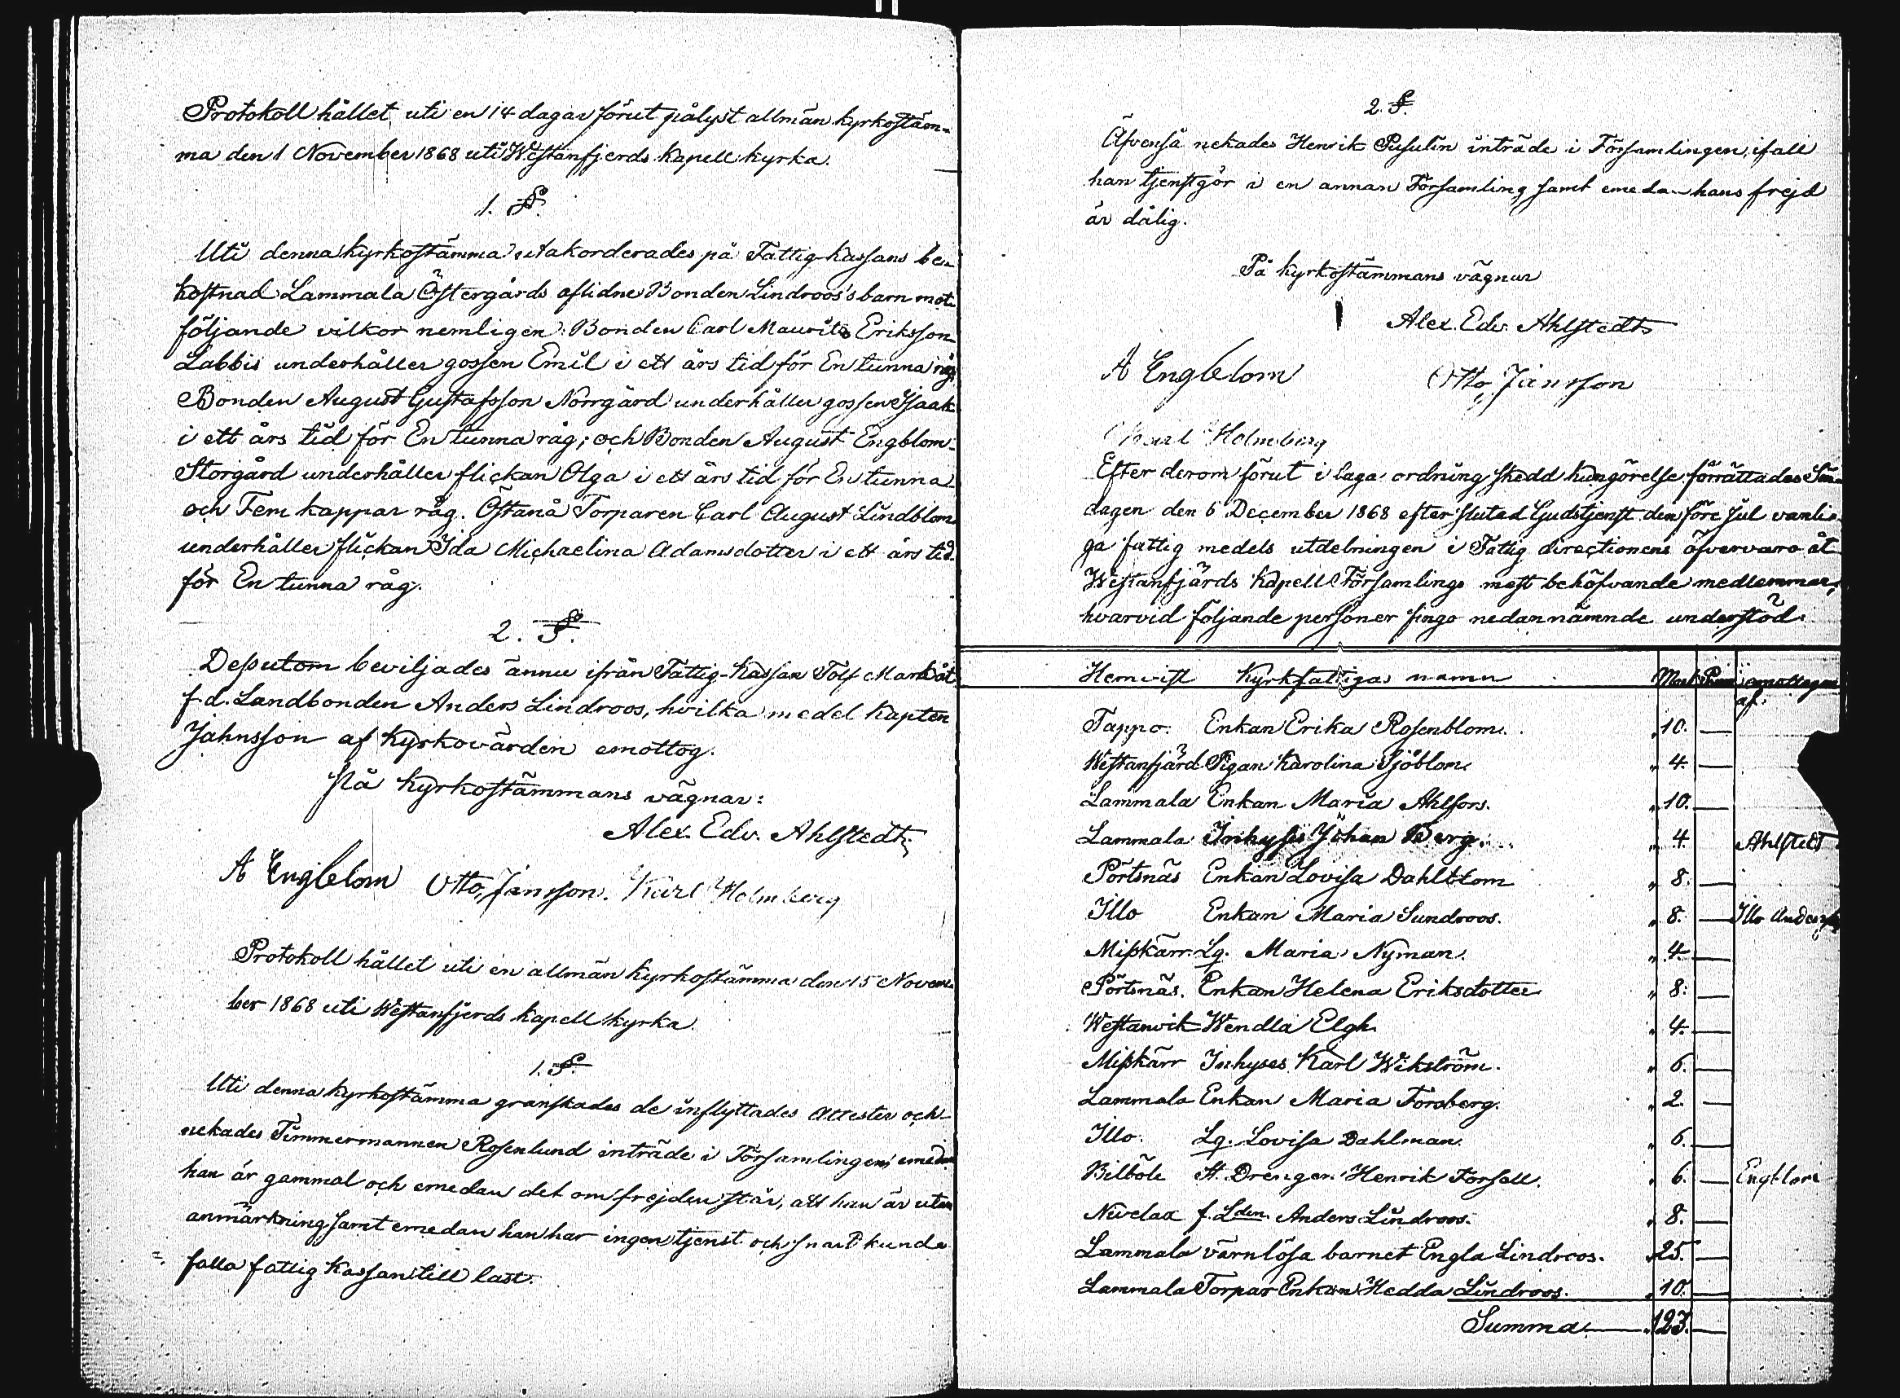 Protokoll hållet uti en 14 dagar förut pålyst allmän kyrkostäm-
ma den 1 November 1868 uti Westanfjerds Kapell kyrka.
1. §.
Uti denna kyrkostämma utakorderades på Fattig-Kassans be-
kostnad Lammala Östergårds aflidne Bonden Lindroos's barn mot
följande vilkor nemligen: Bonden Carl Maurits Eriksson
Labbis underhåller gossen Emil i ett års tid för En tunna råg,
Bonden August Gustafsson Norrgård underhåller gossen Isaak
i ett års tid för En tunna råg; och Bonden August Engblom
Storgård underhåller flickan Olga i ett års tid för En tunna
och Fem kappar råg. Östanå Torparen Carl August Lindblom
underhåller flickan Ida Michaelina Adamsdotter i ett års tid
för En tunna råg.
2. §.
Dessutom beviljades ännu ifrån Fattig-Kassan Tolf Mark åt
f.d. Landbonden Anders Lindroos, hvilka medel Kapten
Jahnsson af Kyrkovärden emottog.
På Kyrkostämmans vägnar:
Alex. Edv. Ahlstedt
A Engblom Otto Jansson. Karl Holmberg
Protokoll hållet uti en allmän Kyrkostämma den 15 Novem-
ber 1868 uti Westanfjerds kapell kyrka.
1. §.
Uti denna kyrkostämma granskades de inflyttades attester och
nekades Timmermannen Rosenlund inträde i Församlingen, emedan
han är gammal och emedan det om frejden står, att han är utan
anmärkning samt emedan han har ingen tjenst och snart kunde
falla fattig Kassan till last.
2. §.
Äfvenså nekades Henrik inträde i Församlingen, ifall
han tjenstgör i en annan Församling samt emedan hans frejd
är dålig.
På Kyrkostämmans vägnar
Alex. Edv. Ahlstedt
A Engblom Otto Jansson
Karl Holmberg
Efter derom förut i laga ordning skedd kungörelse förrättades Sön-
dagen den 6 December 1868 efter slutad Gudstjenst den före Jul vanli-
ga fattig medels utdelningen i Fattig directionens öfvervaro åt
Westanfjärds Kapell Församlings mest behöfvande medlemmar,
hvarvid följande personer fingo nedannämnde understöd.
Hemvist Kyrkfattigas namn Mark Penni emottagen af.
Tappo. Enkan Erika Rosenblom. " 10. —
Westanfjärd Pigan Karolina Sjöblom. " 4. —
Lammala Enkan Maria Ahlfors. " 10. —
Lammala Inhyses Johan Berg. " 4. — Ahlstedt
Pörtsnäs Enkan Lovisa Dahlblom " 8. —
Illo Enkan Maria Sundroos. " 8. — Illo Anders
Misskärr Lg. Maria Nyman. " 4. —
Pörtsnäs. Enkan Helena Eriksdotter " 8. —
Westanvik Wendla Elgh " 4. —
Misskärr Inhyses Karl Wikström. " 6. —
Lammala Enkan Maria Forsberg. " 2. —
Illo. Lg. Lovisa Dahlman. " 6. —
Billböle St. Drengen Henrik Forsell. " 6. — Engblom
Nivelax f. Lden Anders Lindroos. " 8. —
Lammala värnlösa barnet Engla Lindroos. " 25. —
Lammala Torpar Enkan Hedda Lindroos. " 10. —
Summa — " 123. —